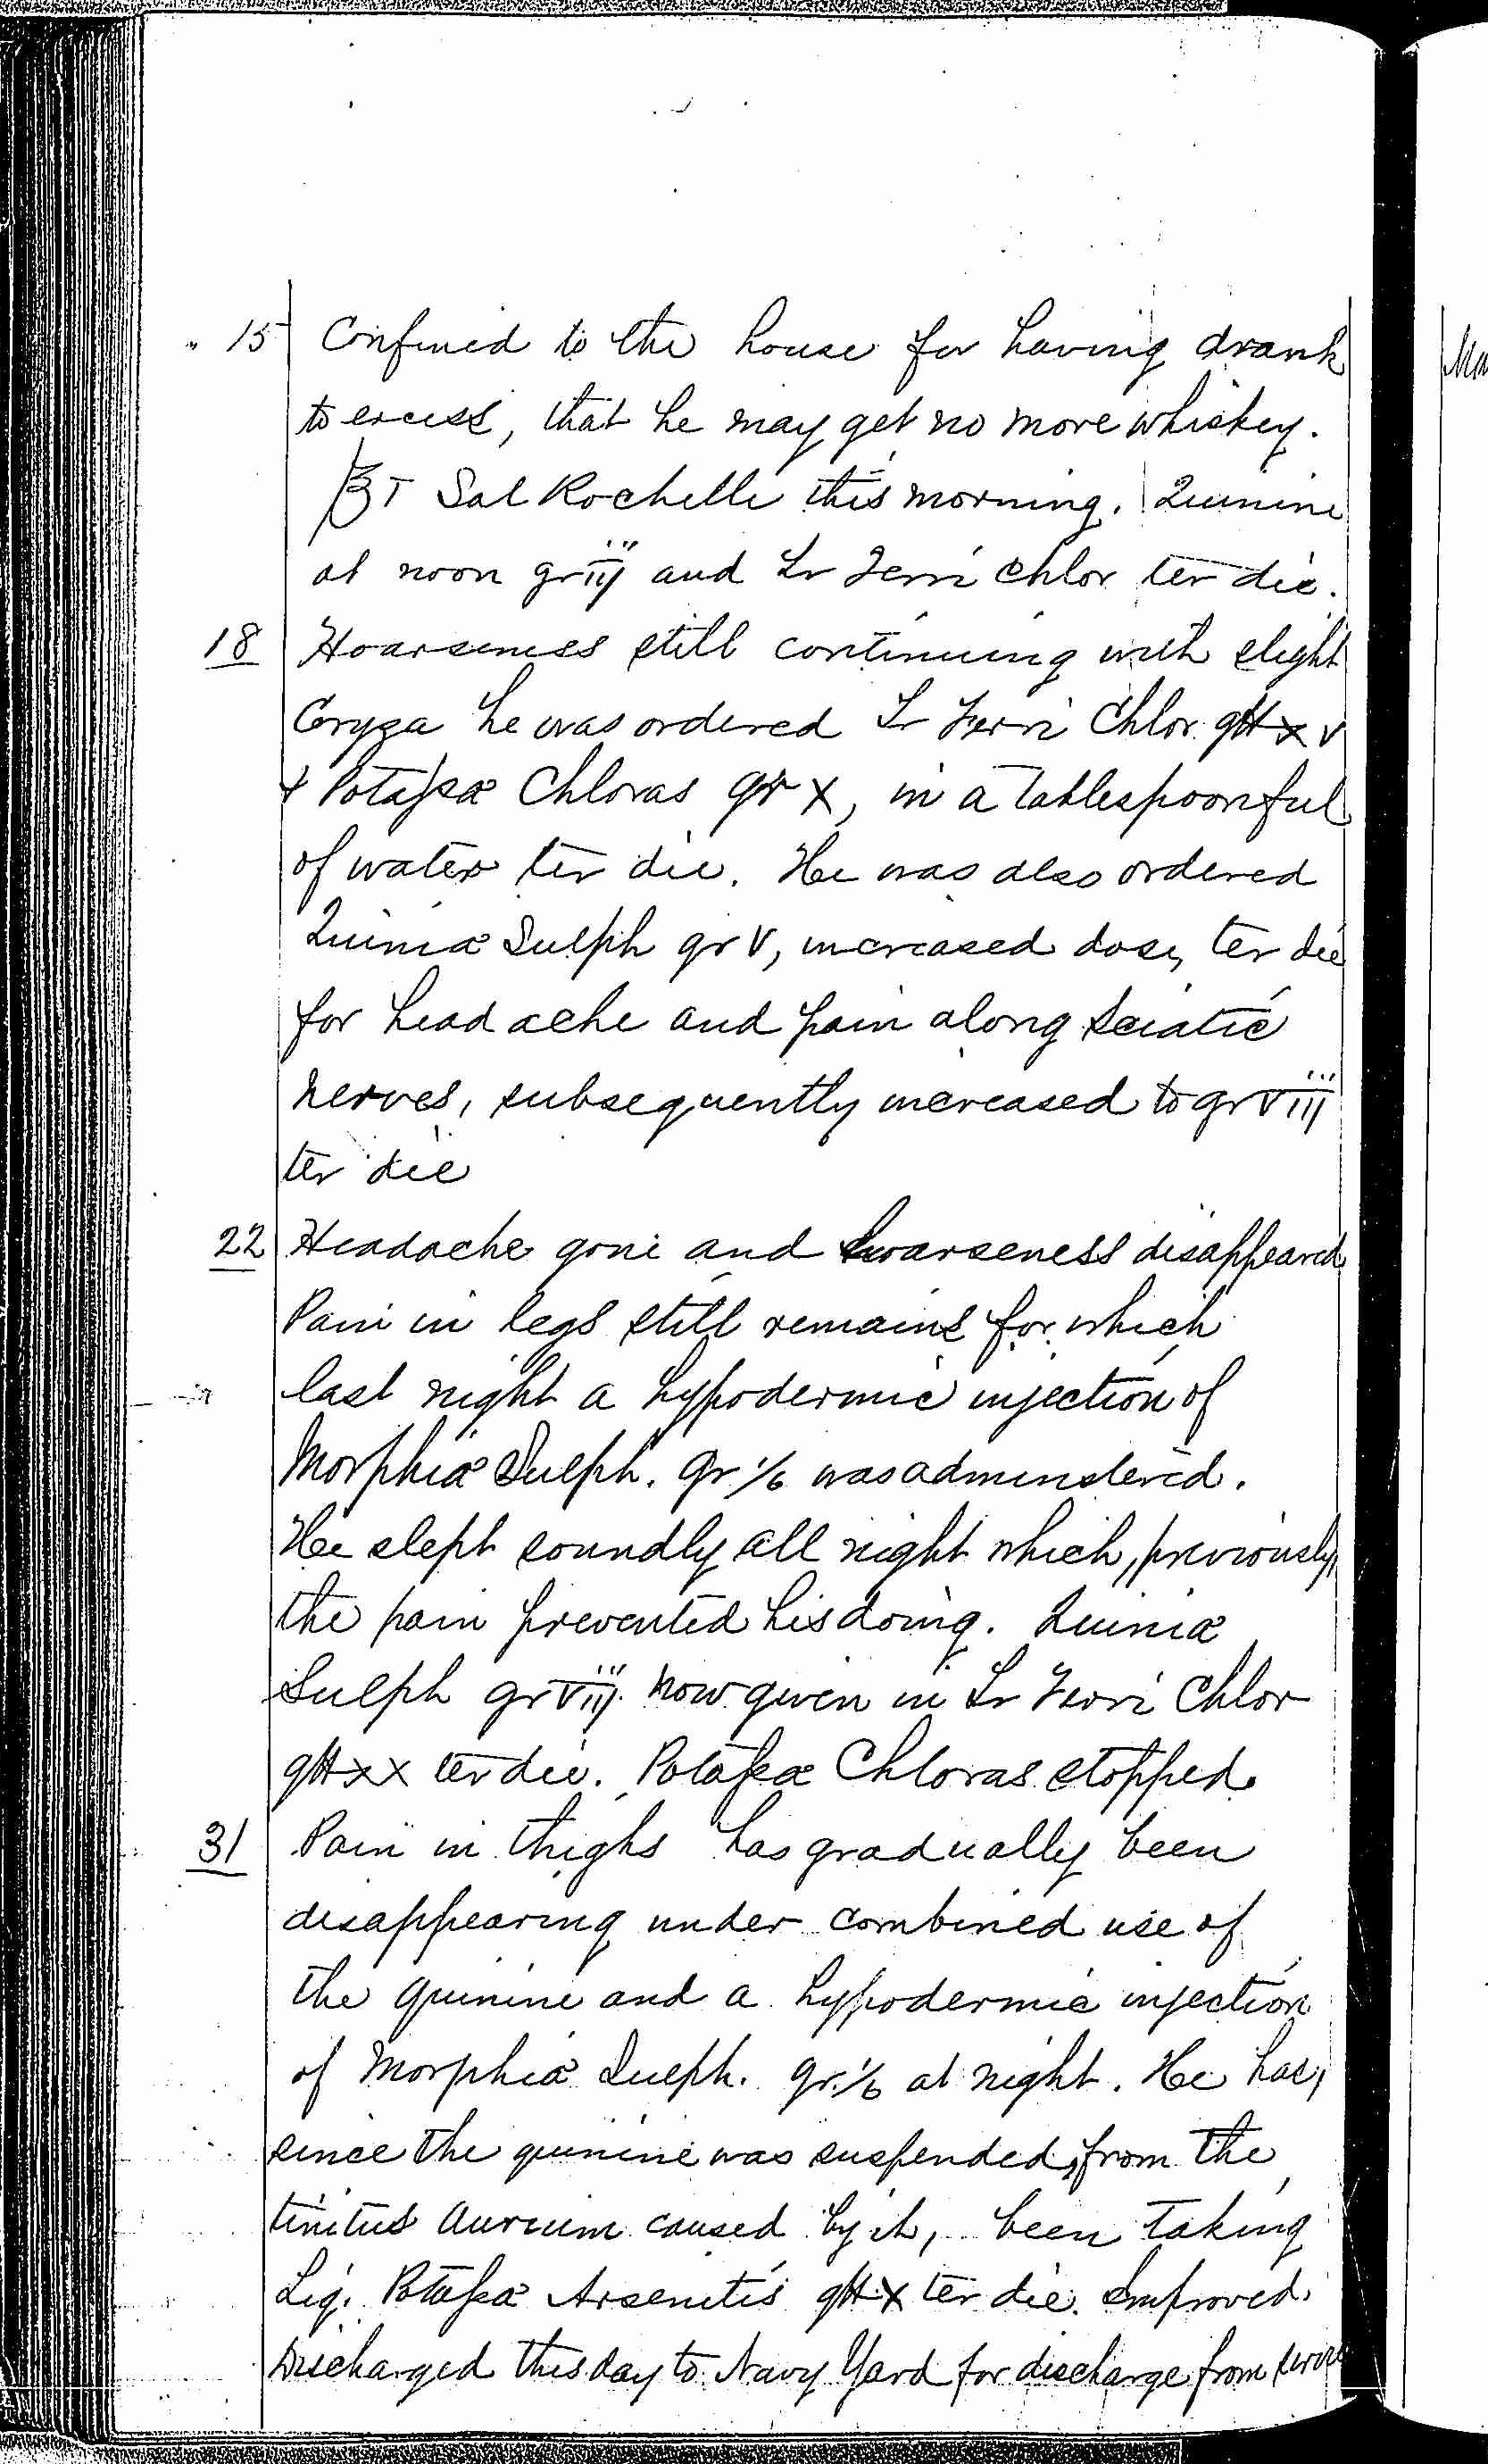 " 15 Confined to the house for having drank
to excess, that he may get no more whiskey.
℥i Sal Rochelle this morning. Quinine
at noon gr iij and Tr Ferri Chlor ter die.
18 Hoarseness still continuing with slight
Coryza he was ordered Tr Ferri Chlor. gtt xv
& Potassæ Chloras gr x, in a tablespoonful
of water ter die. He was also ordered
Quiniæ Sulph gr V, increased dose, ter die
for head ache and pain along sciatic
nerves, subsequently increased to gr viij
ter die
22 Headache gone and hoarseness disappeared.
Pain in legs still remains for which
last night a hypodermic injection of
Morphiæ Sulph. gr 1/6 was adminstered.
He slept soundly all night which, previously,
the pain prevented his doing. Quiniæ
Sulph gr viij now given in Tr Ferri Chlor
gtt xx ter die. Potassæ Chloras stopped.
31 Pain in thighs has gradually been
disappearing under combined use of
the quinine and a hypodermic injection
of Morphiæ Sulph. gr. 1/6 at night. He has,
since the quinine was suspended, from the
tinitus aurium caused by it, been taking
Liq. Potassæ Arsenitis gtt x ter die. Improved.
Discharged this day to Navy Yard for discharge from service